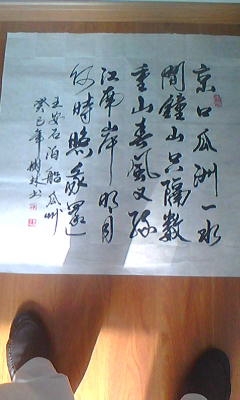 京口瓜洲一水
間鐘山只隔数
重山春風又绿
江南岸明月
何時照我還
王安石泊船瓜州
癸巳年